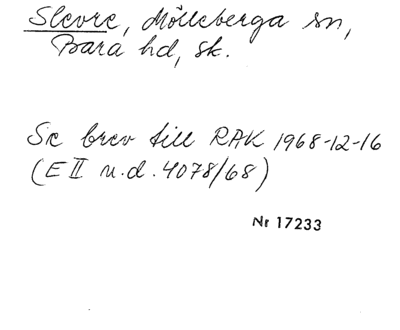 Slevre, Mölleberga sn,
Bara hd, sk.
Se brev till RAK 1968-12-16
(E II u.d. 4078/68)
Nr 17233